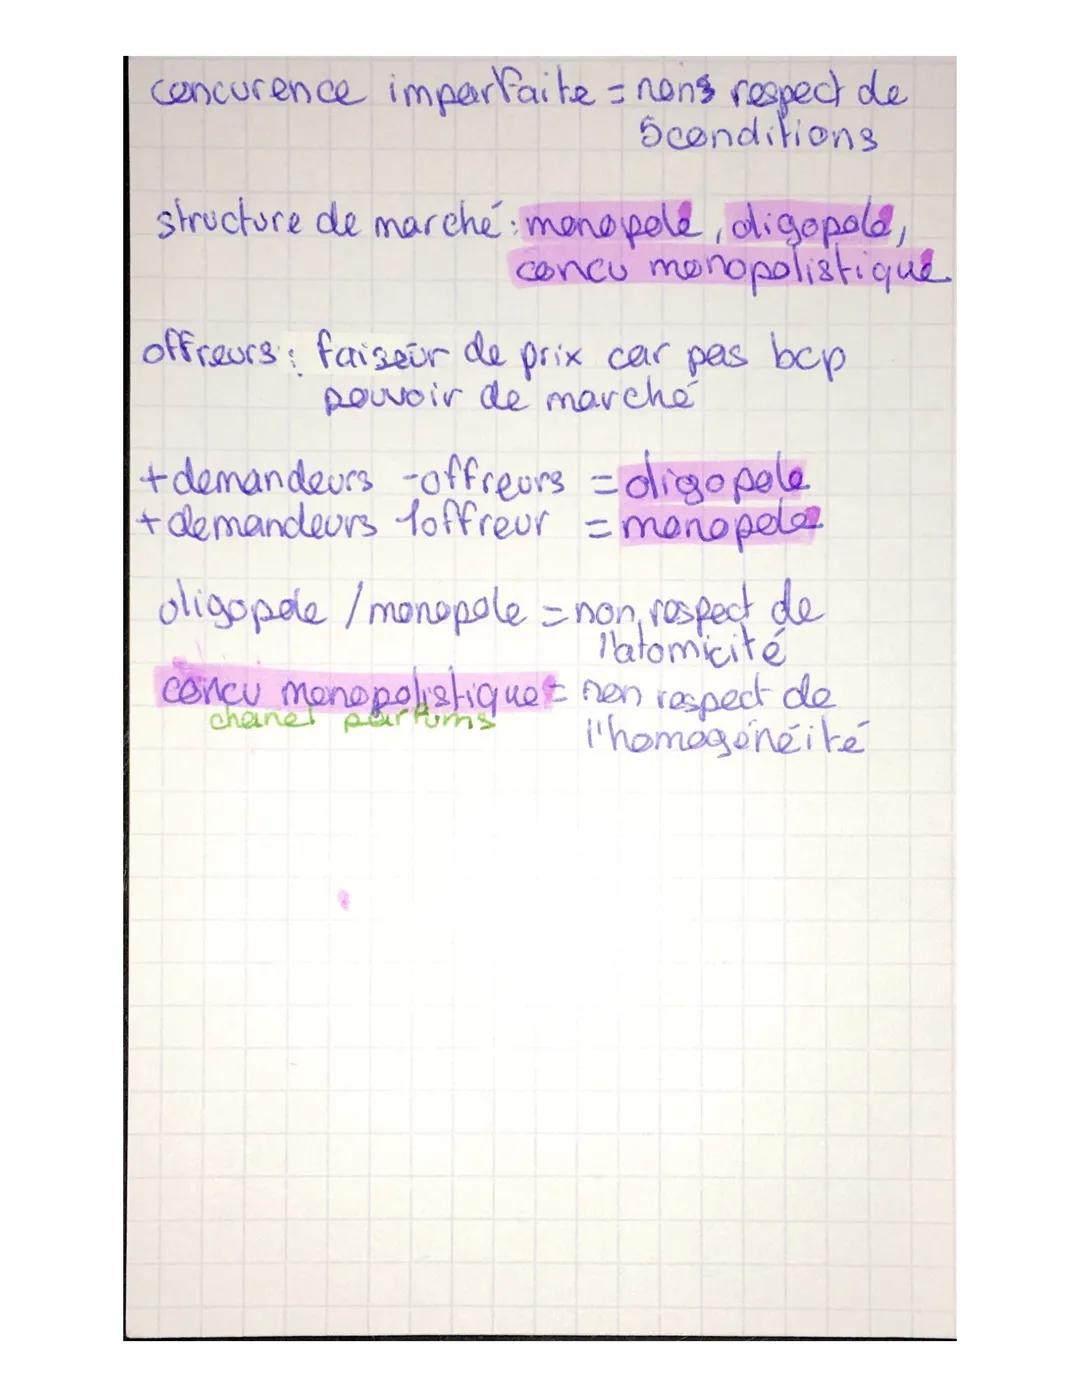 concurence imparfaite = nons respect de
5 conditions
structure de marché : monopole, oligopole,
concu monopolistique
offreurs : faiseur de prix car pas bcp
pouvoir de marché
+ demandeurs - offreurs = oligopole
+ demandeurs 1 offreur = monopole
oligopole / monopole = non respect de
l'atomicité
concu monopolistique = non respect de
chanel parfums
l'homogénéité